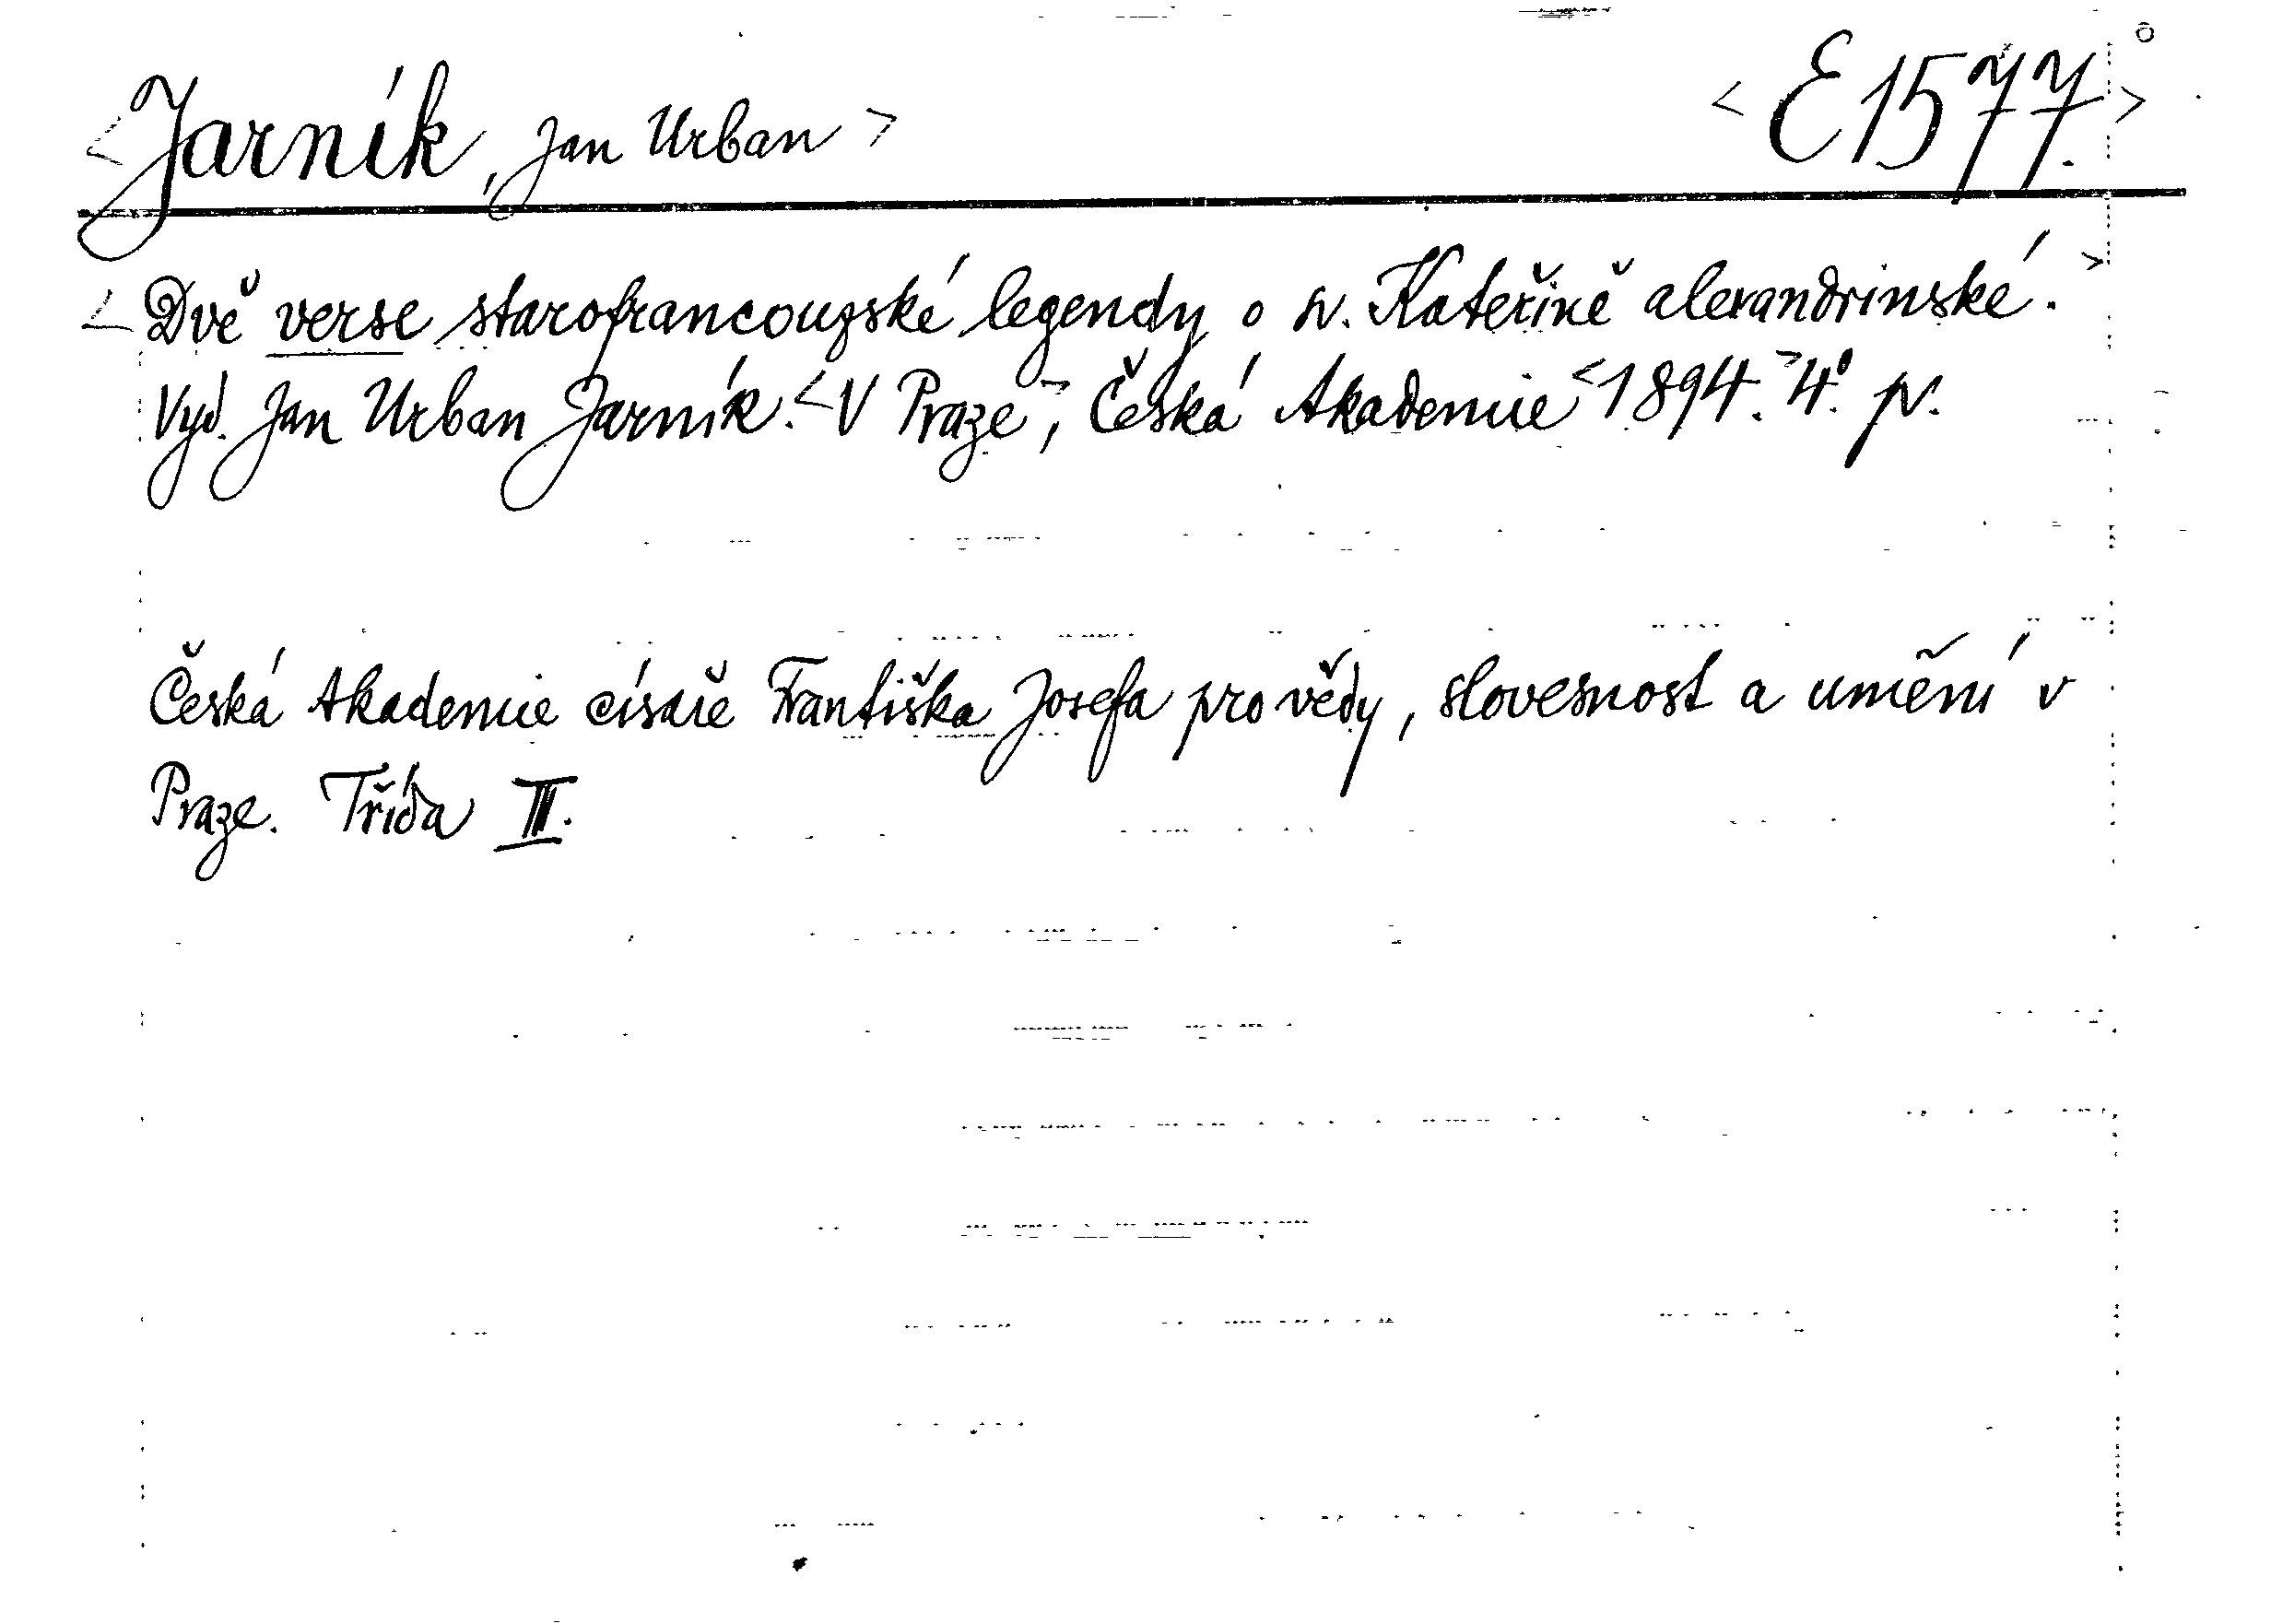 <Jarník, Jan Urban> <E 1577.>
<Dvě verse starofrancouzské legendy o sv. Kateřině alexandrinské.>
Vyd. Jan Urban Jarník. <V Praze>, Česká Akademie <1894.> 4°. pv.
Česká Akademie císaře Františka Josefa pro vědy, slovesnost a umění v
Praze. Třída III.